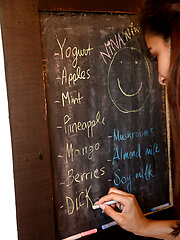 NINA NINA
- Yogurt
- Apples
- Mint
- Pineapple
- Mango
- Berries
- DICK
- Mushrooms
- Almond milk
- Soy milk